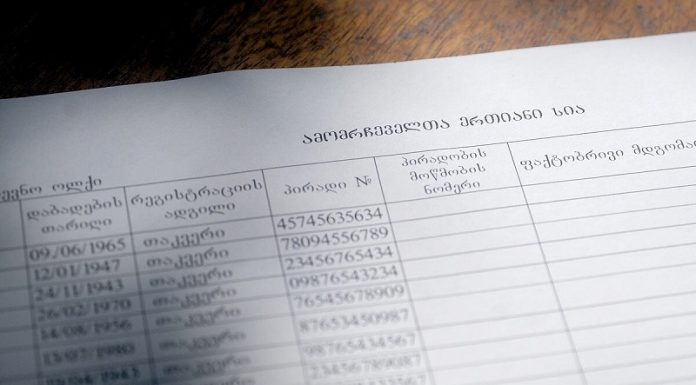 ამომრჩეველთა ერთიანი სია
ოლქი
დაბადების თარიღი
რეგისტრაციის ადგილი
პირადი №
პირადობის მოწმობის ნომერი
ფაქტობრივი
09/06/1965 თაკვერი 45745635634
12/01/1947 თაკვერი 78094556789
24/11/1943 თაკვერი 23456765434
26/02/1970 თაკვერი 09876543234
14/08/1956 თაკვერი 76545678909
87653450987
98765434567